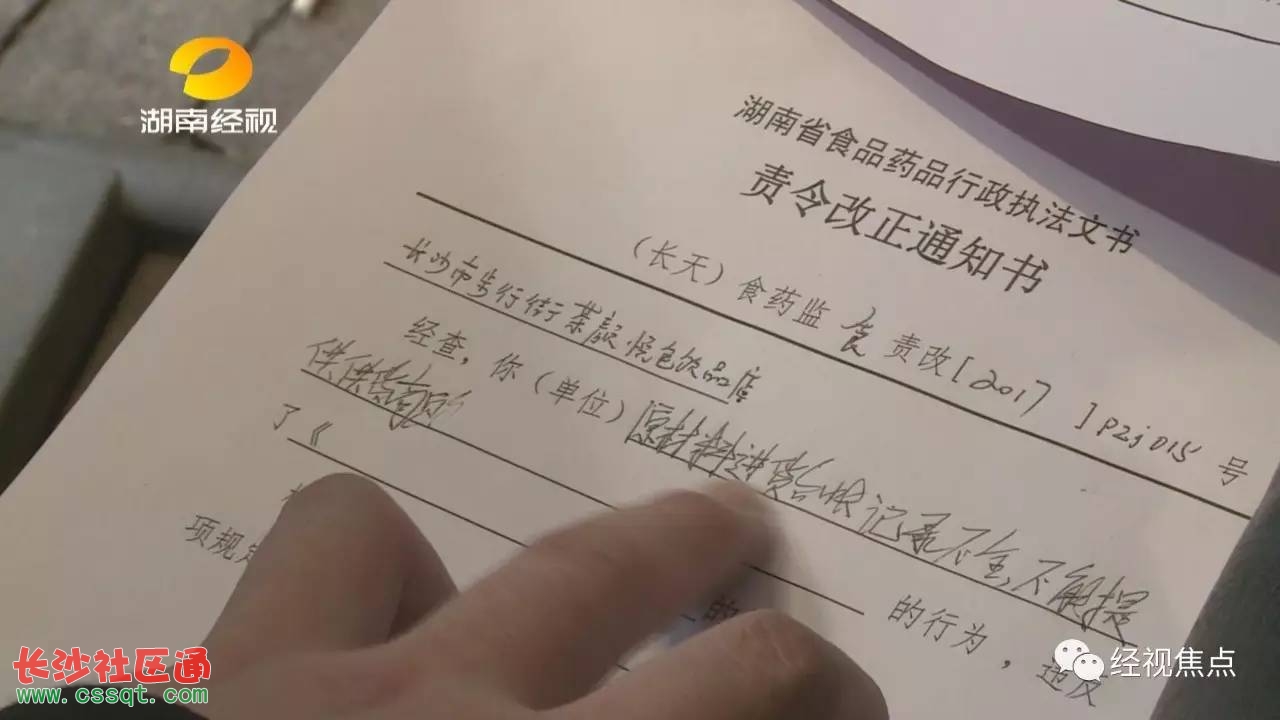 湖南经视
湖南省食品药品行政执法文书
责令改正通知书
(长天)食药监 食 责改[2017]PZJ015 号
长沙市步行街茶颜悦色饮品店
经查,你(单位)原材料进货台账记录不全,不能提
供供货商
的行为,违反
了《
的
项规定
经视焦点
长沙社区通
www.cssqt.com